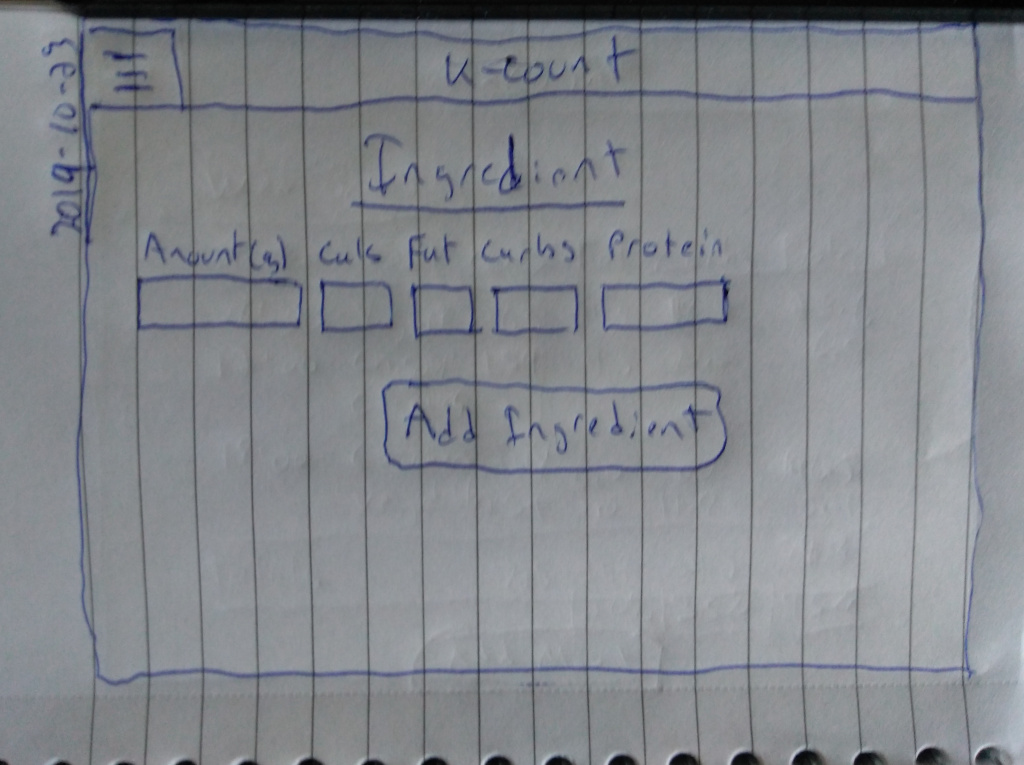 2019-10-29
K-count
Ingredient
Amount(g) Cals Fat Carbs Protein
Add Ingredient